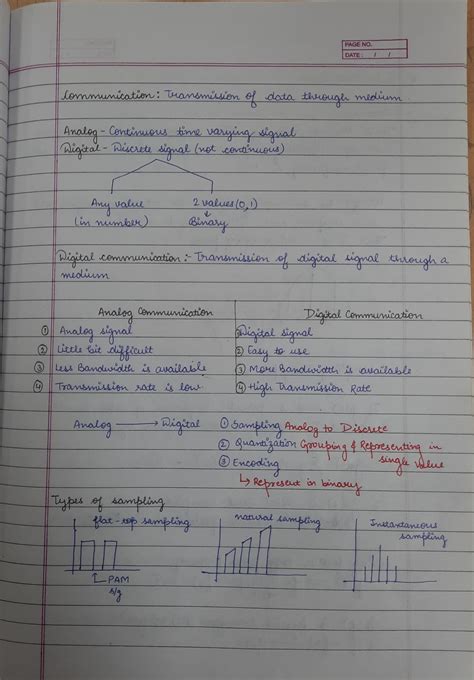 PAGE NO.
DATE: / /
Communication: Transmission of data through medium
Analog - Continuous time varying signal
Digital - Discrete signal (not continuous)
Any value 2 values (0,1)
(in number) Binary
Digital communication:- Transmission of digital signal through a
medium
Analog Communication Digital Communication
① Analog signal ① Digital signal
② Little bit difficult ② Easy to use
③ Less Bandwidth is available ③ More Bandwidth is available
④ Transmission rate is low ④ High Transmission Rate
Analog → Digital ① Sampling Analog to Discrete
② Quantization Grouping & Representing in
single value
③ Encoding
↳ Represent in binary
Types of sampling
flat-top sampling natural sampling Instantaneous
sampling
PAM
s/g